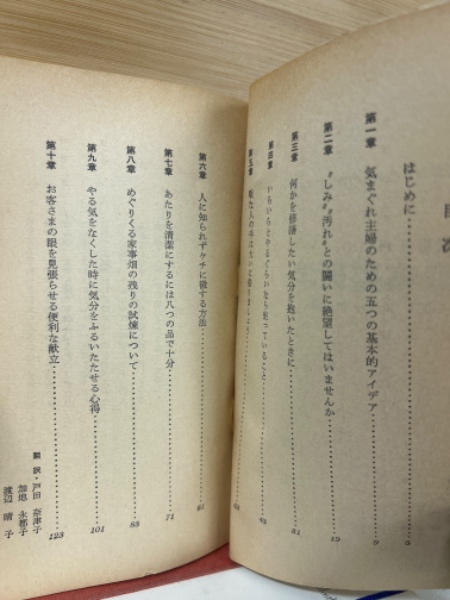 目次
はじめに 5
第一章 気まぐれ主婦のための五つの基本的アイデア 9
第二章 “しみ”“汚れ”との闘いに絶望してはいませんか 19
第三章 何かを修繕したい気分を抱いたときに 31
第四章 いちいちとやるぐらいなら死っていること
第五章 暇な人の手は大いに借りましょう
第六章 人に知られずケチに徹する方法 61
第七章 あたりを清潔にするには八つの品で十分 71
第八章 めぐりくる家事畑の残りの試煉について 83
第九章 やる気をなくした時に気分をふるいたたせる心得 101
第十章 お客さまの眼を見張らせる便利な献立 123
翻訳・戸田奈津子
加地永都子
渡辺晴子